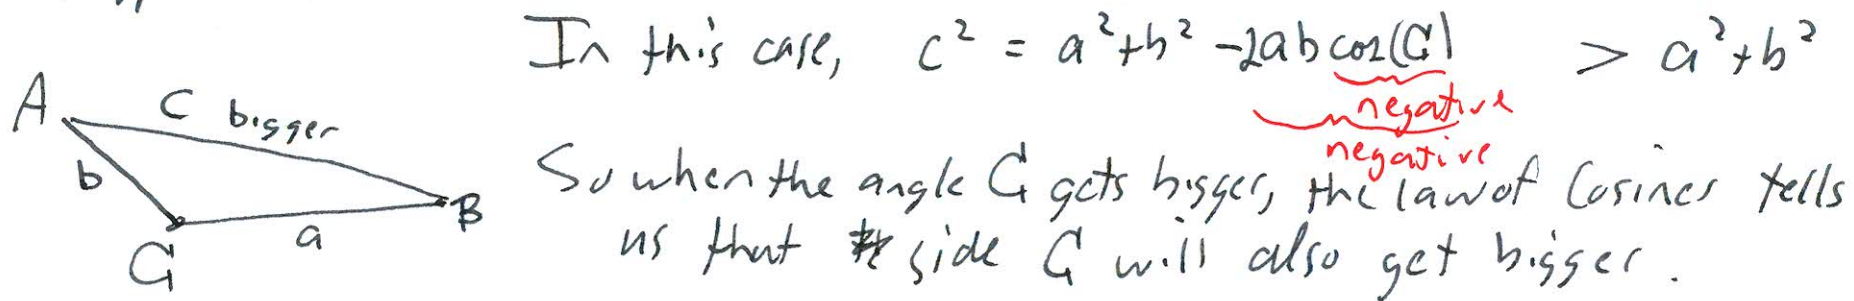 In this case, c² = a² + b² - 2ab cos(C) > a² + b²
negative
negative
A
c bigger
b
B
a
C
So when the angle C gets bigger, the law of Cosines tells
us that side C will also get bigger.